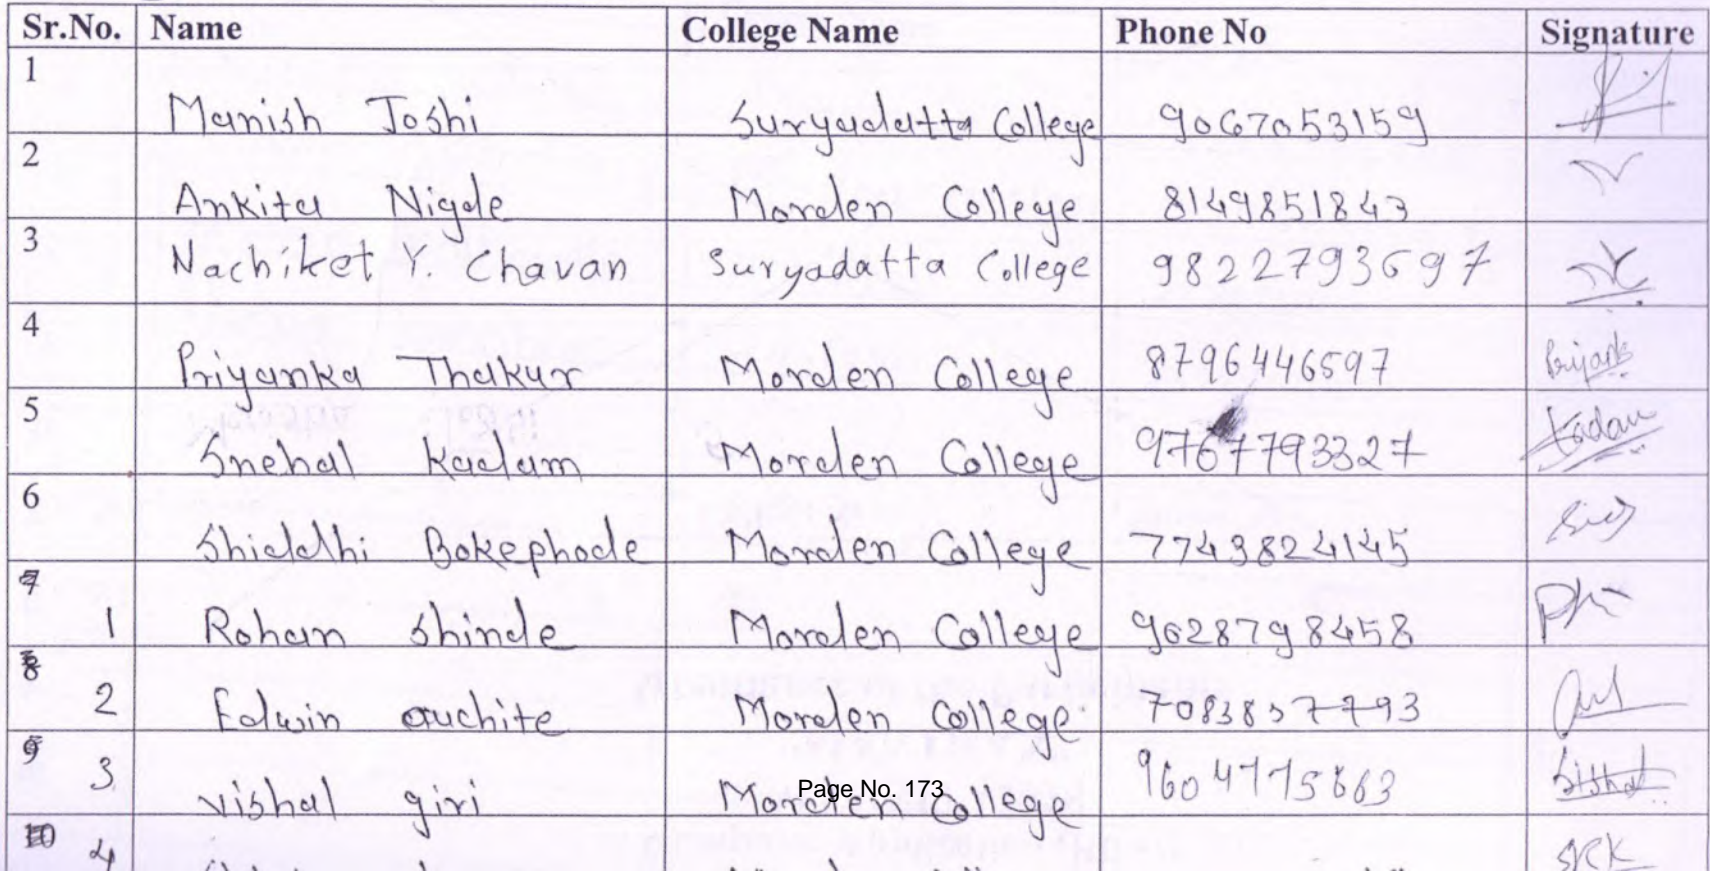 Sr.No. Name College Name Phone No Signature
1 Manish Joshi Suryadatta College 9067053159
2 Ankita Nigde Morden College 8149851843
3 Nachiket Y. Chavan Suryadatta College 9822793697
4 Priyanka Thakur Morden College 8796446597
5 Snehal Kadam Morden College 9767793327 Kadam
6 Shiddhi Bokephode Morden College 7743824145
7 1 Rohan Shinde Morden College 9628798458
8 2 Edwin auchite Morden College 7083857793
9 3 vishal giri Morden College 9604775863
Page No. 173
10 4 SRK